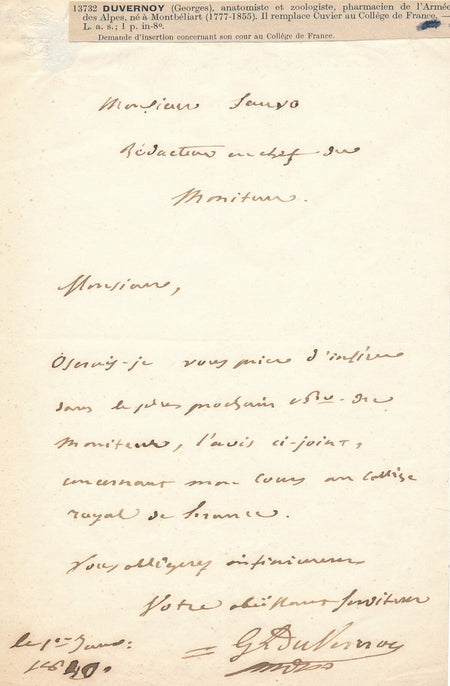 13732 DUVERNOY (Georges), anatomiste et zoologiste, pharmacien de l'Armée
des Alpes, né à Montbéliart (1777-1855). Il remplace Cuvier au Collège de France. —
L. a. s.; 1 p. in-8º.
Demande d'insertion concernant son cour au Collège de France.
Monsieur Sauvo
Rédacteur en chef du
Moniteur.
Monsieur,
Oserais-je vous prier d'insérer
dans le plus prochain du
Moniteur, l'avis ci-joint,
concernant mon Cours au Collège
royal de France.
Vous obligerez infiniment
Votre obéissant serviteur
le 1er Janv:
1840.
G. L. DuVernoy